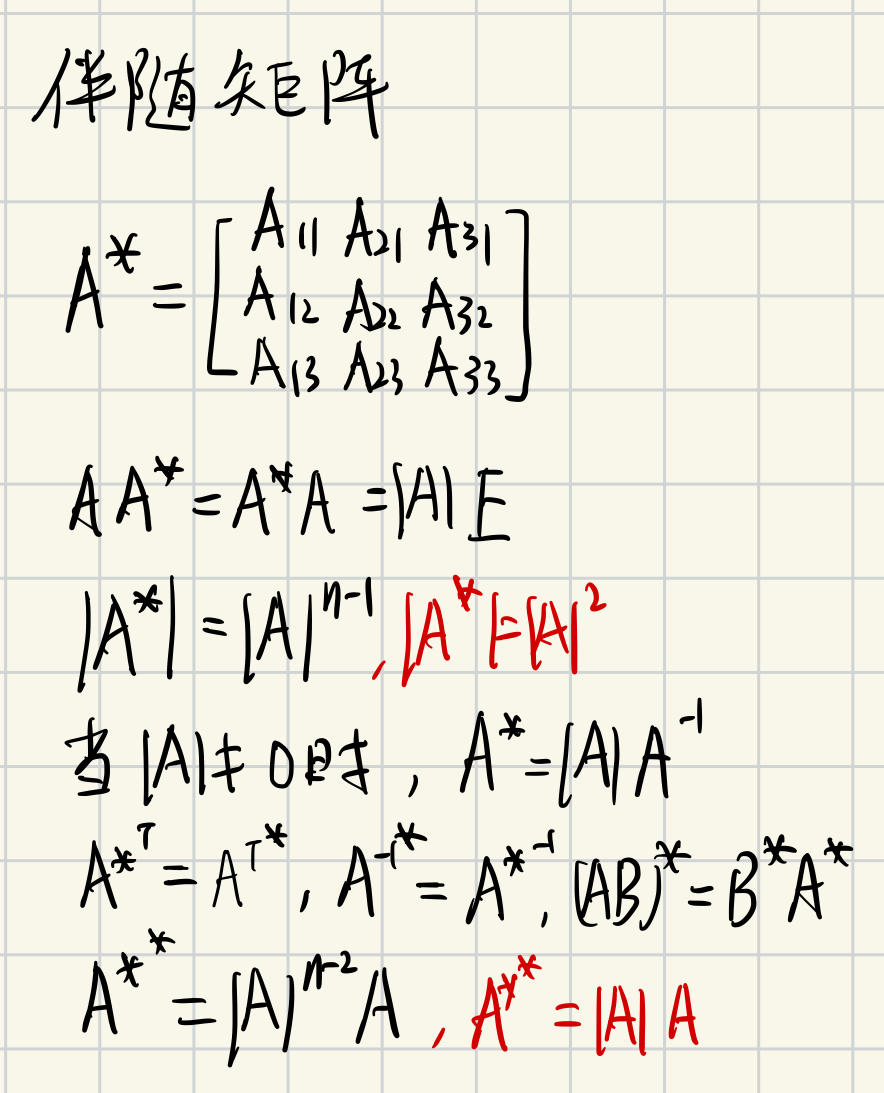 伴随矩阵
A* = [ A₁₁ A₂₁ A₃₁
A₁₂ A₂₂ A₃₂
A₁₃ A₂₃ A₃₃ ]
AA* = A*A = |A|E
|A*| = |A|ⁿ⁻¹, |A*| = |A|²
当 |A| ≠ 0 时, A* = |A|A⁻¹
A*ᵀ = Aᵀ*, A⁻¹* = A*⁻¹, (AB)* = B*A*
A** = |A|ⁿ⁻²A, A** = |A|A